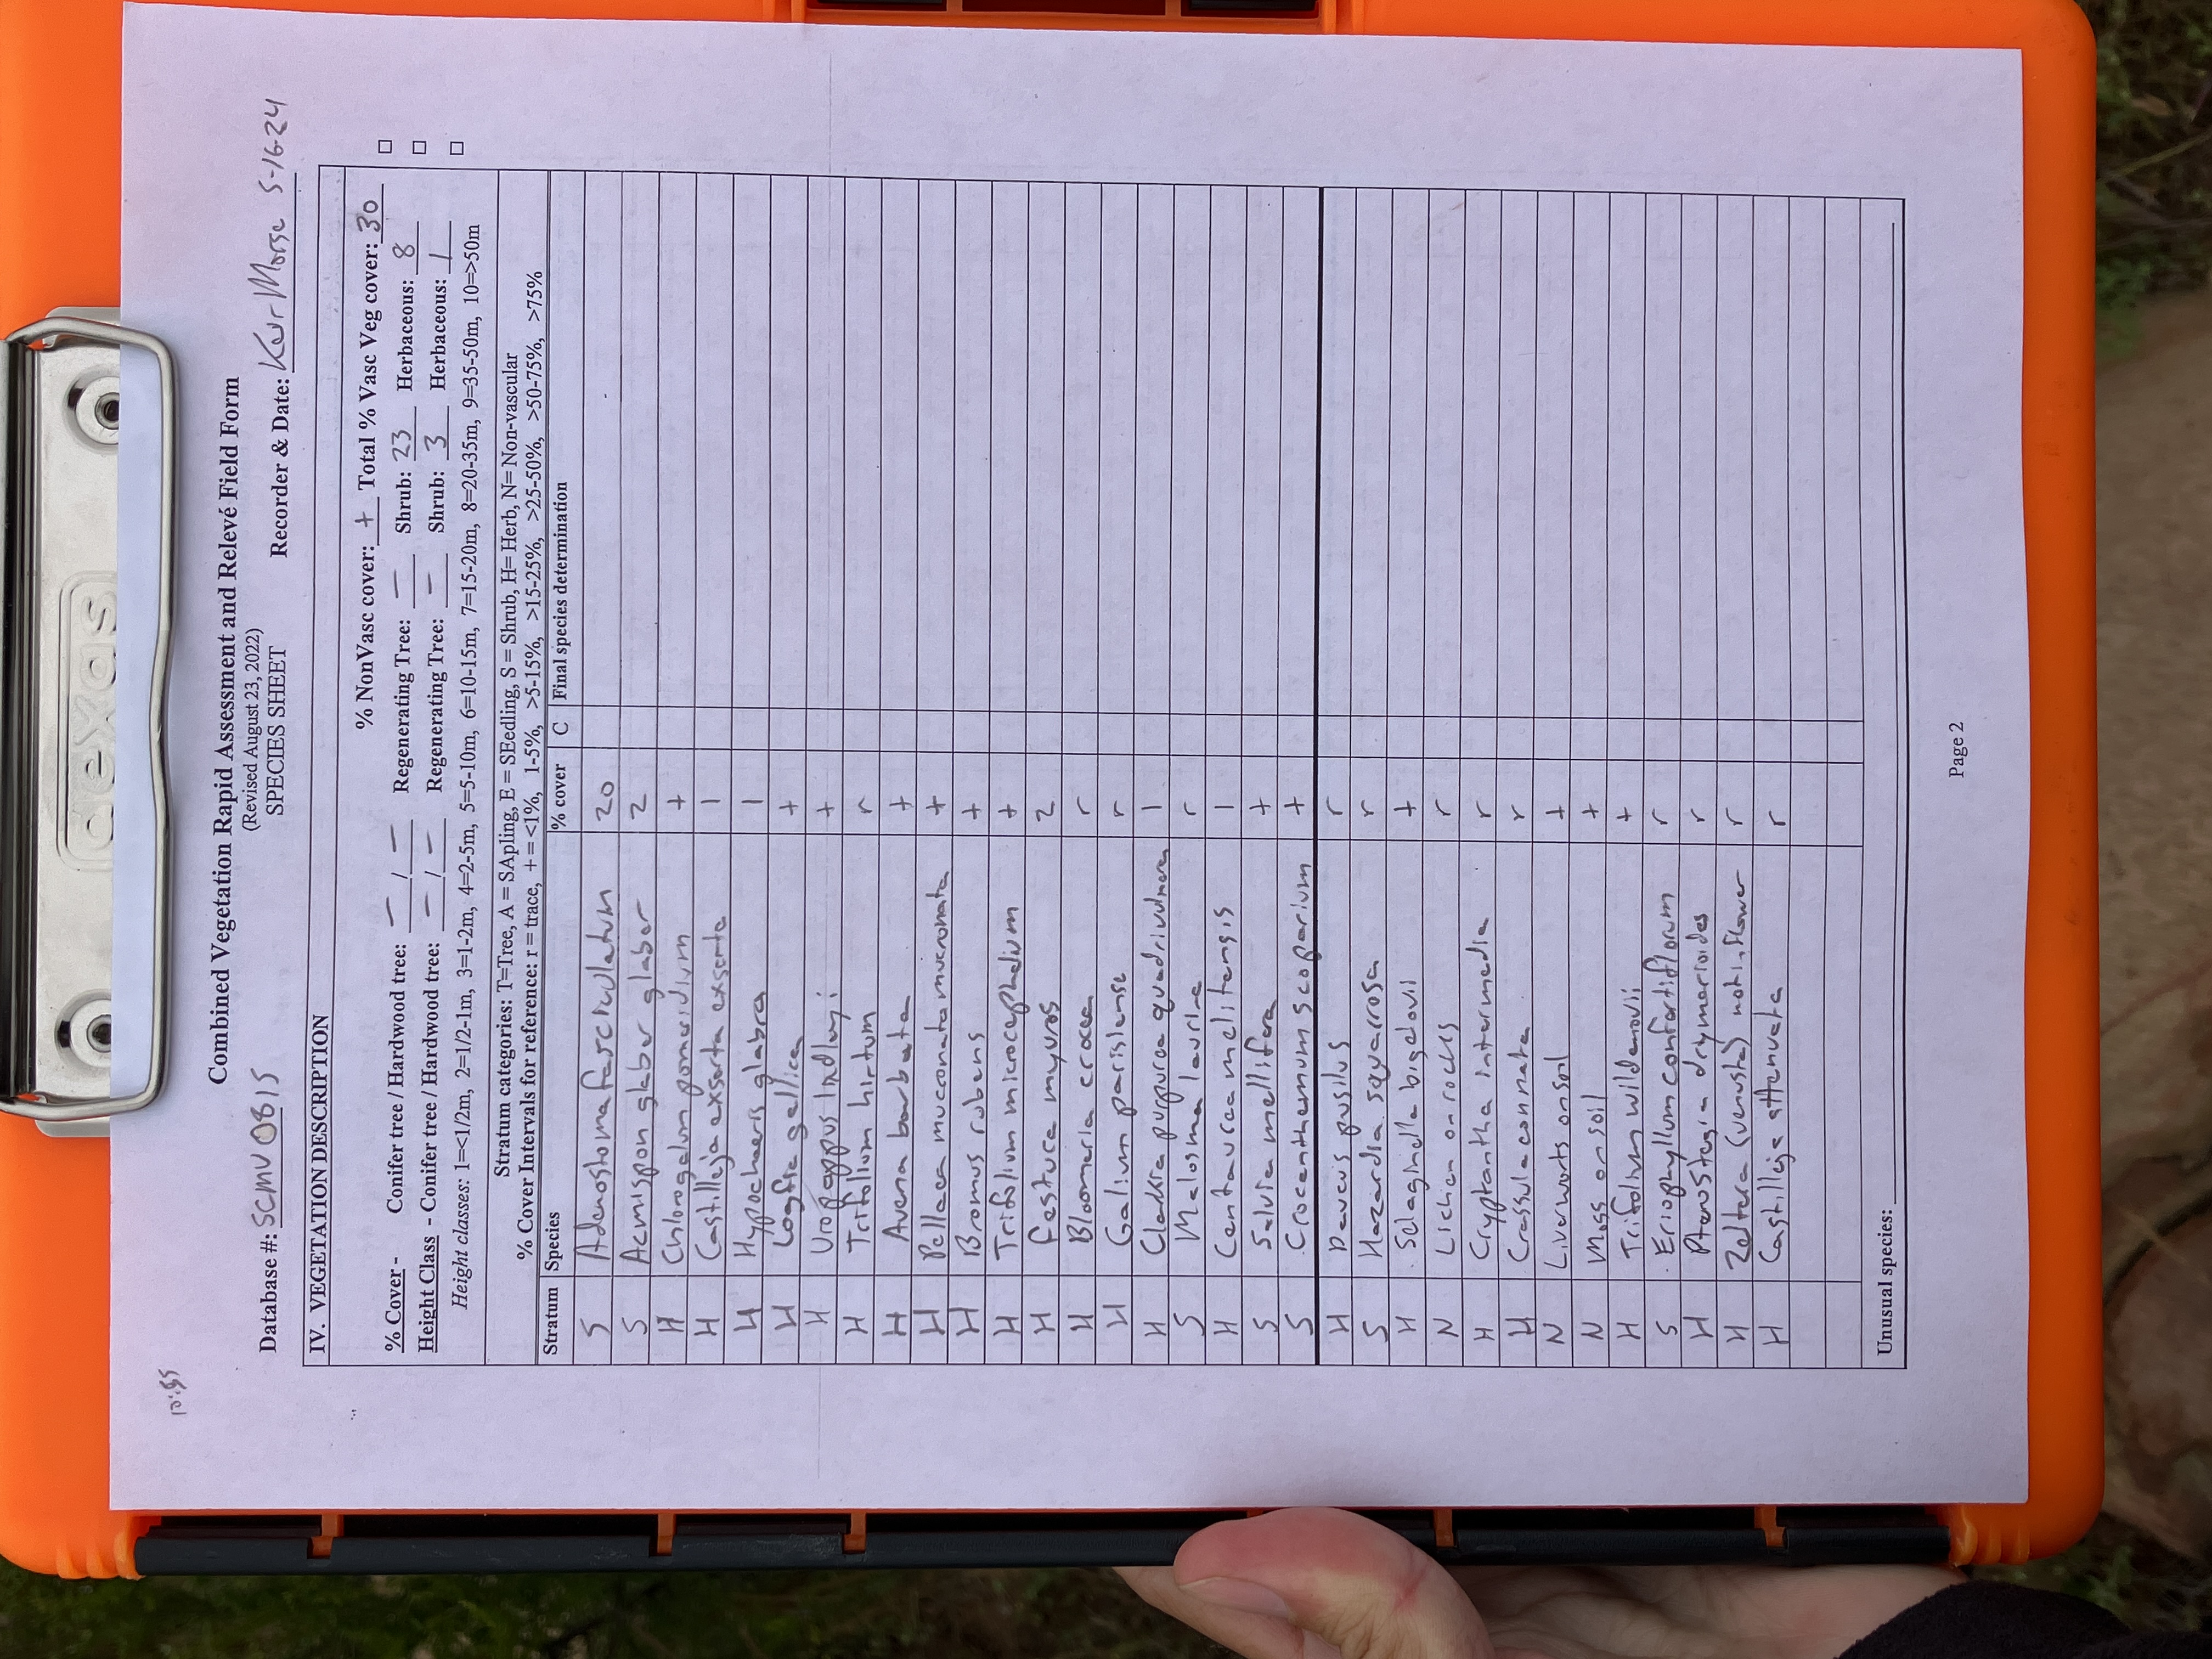 dexas
10:55
Combined Vegetation Rapid Assessment and Relevé Field Form
(Revised August 23, 2022)
SPECIES SHEET
Database #: SCMVO815 Recorder & Date: Kur Morse 5-16-24
IV. VEGETATION DESCRIPTION
% NonVasc cover: + Total % Vasc Veg cover: 30
% Cover - Conifer tree / Hardwood tree: — / — Regenerating Tree: — Shrub: 23 Herbaceous: 8
Height Class - Conifer tree / Hardwood tree: — / — Regenerating Tree: — Shrub: 3 Herbaceous: 1
Height classes: 1=<1/2m, 2=1/2-1m, 3=1-2m, 4=2-5m, 5=5-10m, 6=10-15m, 7=15-20m, 8=20-35m, 9=35-50m, 10=>50m
Stratum categories: T=Tree, A = SApling, E = SEedling, S = Shrub, H= Herb, N= Non-vascular
% Cover Intervals for reference: r = trace, + = <1%, 1-5%, >5-15%, >15-25%, >25-50%, >50-75%, >75%
Stratum Species % cover C Final species determination
S Adenostoma fasciculatum 20
S Acmispon glaber glaber 2
H Chlorogalum pomeridium +
H Castilleja exserta exserta 1
H Hypochaeris glabra 1
H Logfia gallica +
H Uropappus lindleyi +
H Trifolium hirtum r
H Avena barbata +
H Pellaea mucronata mucronata +
H Bromus rubens +
H Trifolium microcephalum +
H Festuca myuros 2
H Bloomeria crocea r
H Galium parisiense r
H Clarkia purpurea quadrivulnera 1
S Malosma laurina r
H Centaurea melitensis 1
S Salvia mellifera +
S Crocanthemum scoparium +
H Daucus pusilus r
S Hazardia squarrosa r
H Selaginella bigelovii +
N Lichen on rocks r
H Cryptantha intermedia r
H Crassula connata r
N Liverworts on soil +
N Moss on soil +
H Trifolium wildenovii +
S Eriophyllum confertiflorum r
H Pterostegia drymarioides r
H Zeltera (venusta) not in flower r
H Castilleja attenuata r
Unusual species:
Page 2